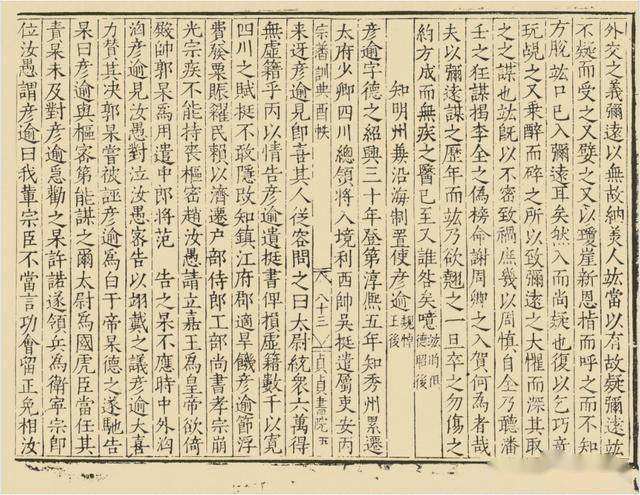 外交之義彌遠以無故納美人竑當以有故疑彌遠竑
不疑而受之又嬖之又以瓊崖新恩指而呼之而不知
方脫竑口已入彌遠耳矣然入而尚疑也復以乞巧竒
玩覘之又乗醉而碎之所以致彌遠之大懼而深其取
之之謀也竑旣以不密致禍庶幾以周慎自全乃聽潘
壬之狂謀揭李全之偽榜命謝周卿之入賀何為者哉
夫以彌遠謀之歴年而竑乃欲翹之一旦卒之勿傷之
約方成而無疾之醫已至又誰咎矣噫
知明州兼沿海制置使彥逾
魏悼王後
彥逾字德之紹興三十年登第淳熈五年知秀州累遷
太府少卿四川總領將入境利西帥吳挺遣屬吏女丙
宗善訓典
八十三
貞貞書院
五
來迓彥逾見即喜其人従容問之曰太尉統衆六萬得
無虚籍乎丙以情告彥逾遺挺書俾損虚籍數千以寛
四川之賦挺不敢隠改知鎮江府郡適旱饑彥逾節浮
費發粟賑糴民賴以濟遷户部侍郎工部尚書孝宗崩
光宗疾不能持喪樞密趙汝愚請立嘉王為皇帝欲倚
殿帥郭杲為用遣中郎將范
告之杲不應時中外洶
洶彥逾見汝愚對泣汝愚密告以翊戴之議彥逾大喜
力賛其决郭杲嘗被誣彥逾為白于帝杲德之遂馳告
杲曰彥逾與樞密第能謀之爾太尉為國虎臣當任其
青杲未及對彥逾急勸之杲許諾遂領兵為衛寧宗即
位汝愚謂彥逾曰我軰宗臣不當言功會留正免相汝